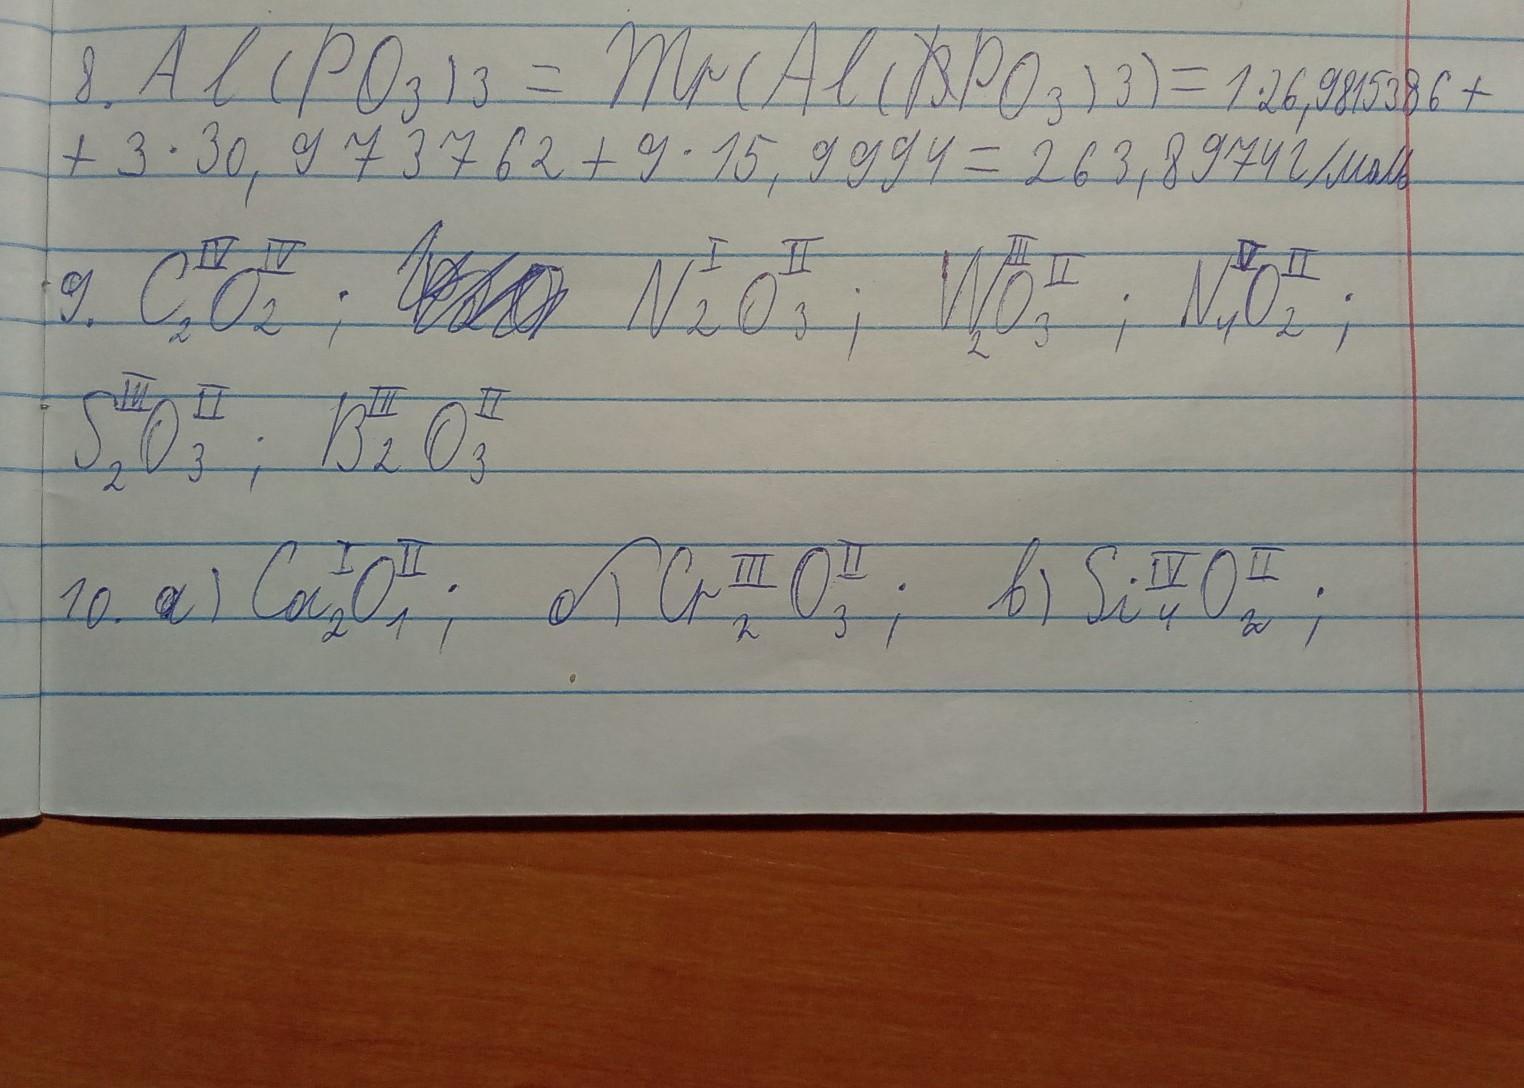 8. Al(PO₃)₃ = Mr(Al(PO₃)3) = 1·26,9815386 +
+ 3·30,973762 + 9·15,9994 = 263,8974 г/моль
9. C₂ᴵⱽO₂ᴵⱽ; N₂ᴵO₃ᴵᴵ; W₂ᴵᴵᴵO₃ᴵᴵ; N₄ᴵⱽO₂ᴵᴵ;
S₂ᴵᴵᴵO₃ᴵᴵ; B₂ᴵᴵᴵO₃ᴵᴵ
10. а) Ca₂ᴵO₁ᴵᴵ; б) Cr₂ᴵᴵᴵO₃ᴵᴵ; в) Si₄ᴵⱽO₂ᴵᴵ;